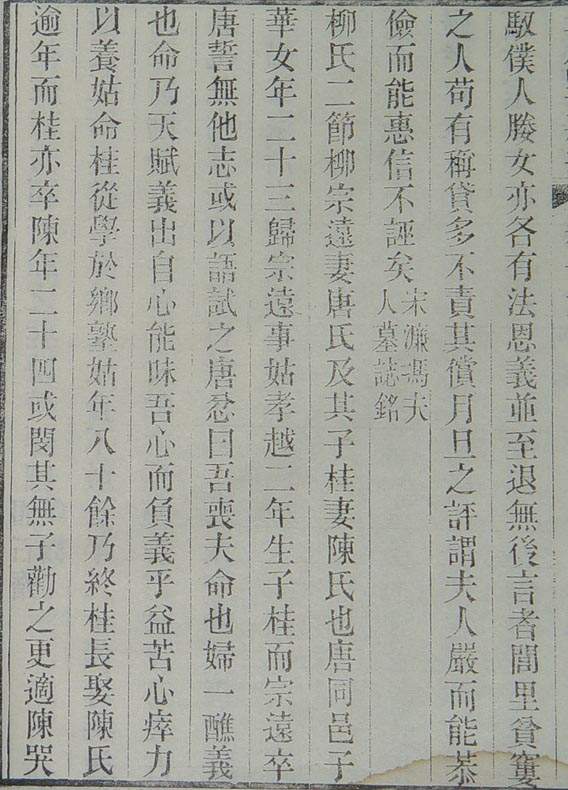 馭僕人媵女亦各有法恩義並至退無後言者閭里貧窶
之人苟有稱貸多不責其償月旦之評謂夫人嚴而能恭
儉而能惠信不誣矣宋濂馮夫
人墓誌銘
柳氏二節柳宗遠妻唐氏及其子桂妻陳氏也唐同邑子
華女年二十三歸宗遠事姑孝越二年生子桂而宗遠卒
唐誓無他志或以語試之唐忿曰吾喪夫命也婦一醮義
也命乃天賦義出自心能昧吾心而負義乎益苦心瘁力
以養姑命桂從學於鄉塾姑年八十餘乃終桂長娶陳氏
逾年而桂亦卒陳年二十四或閔其無子勸之更適陳哭